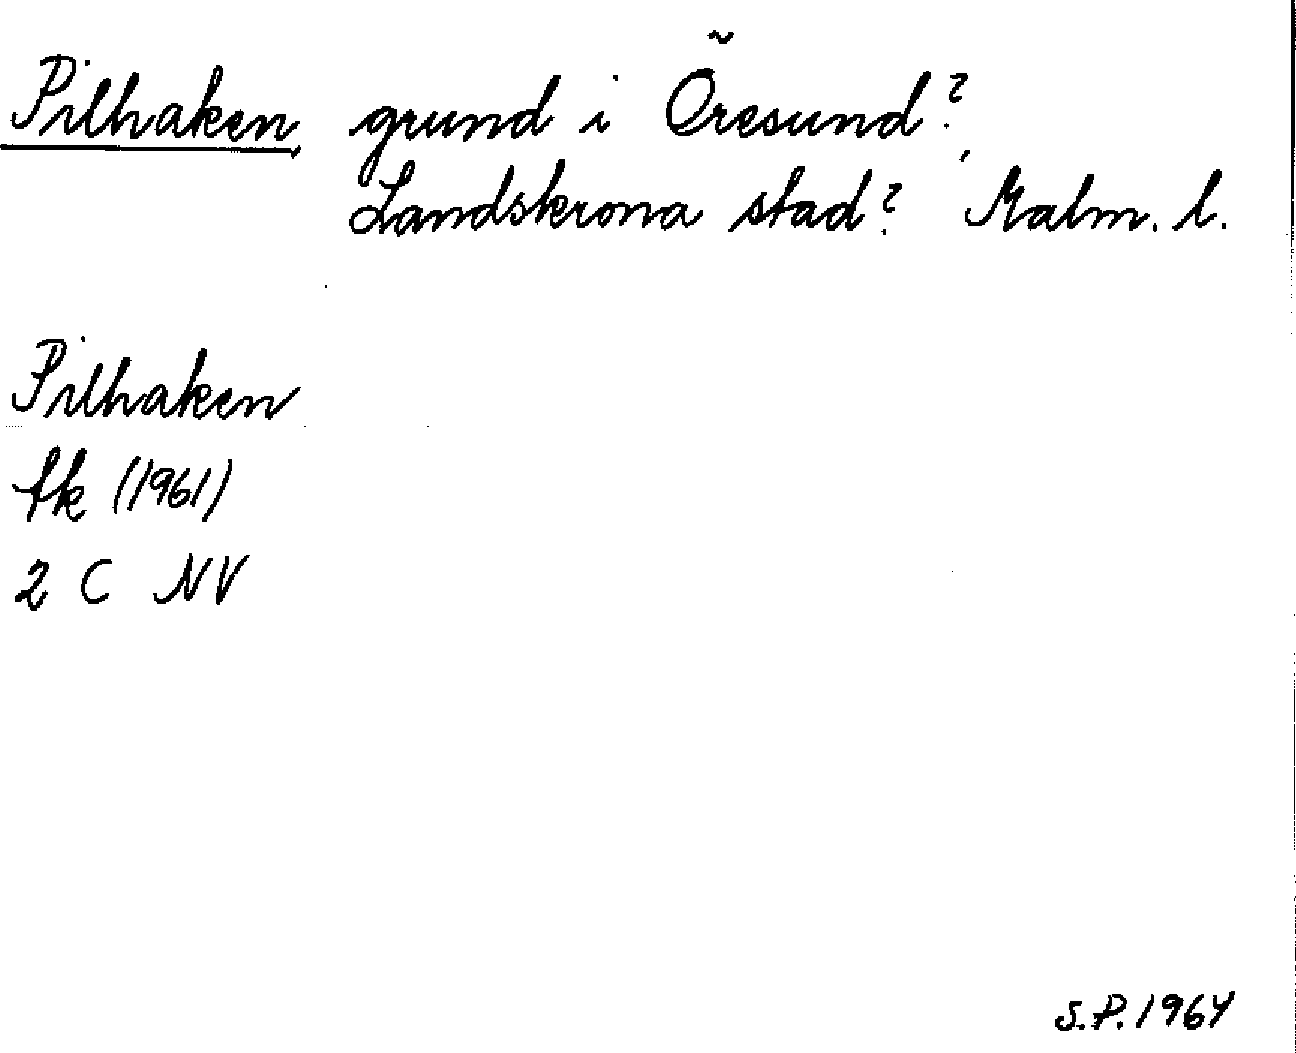 Pilhaken grund i Öresund?
Landskrona stad? Malm. l.
Pilhaken
tk (1961)
2 C NV
S.P. 1964